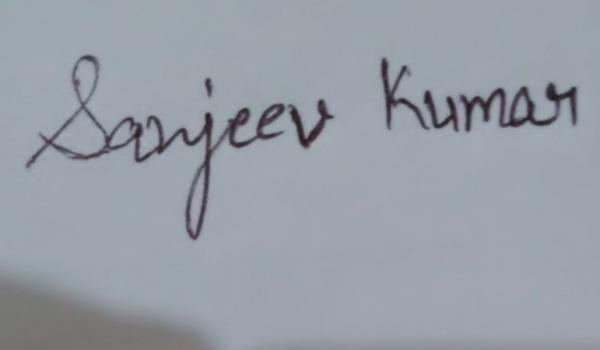 Sanjeev Kumar